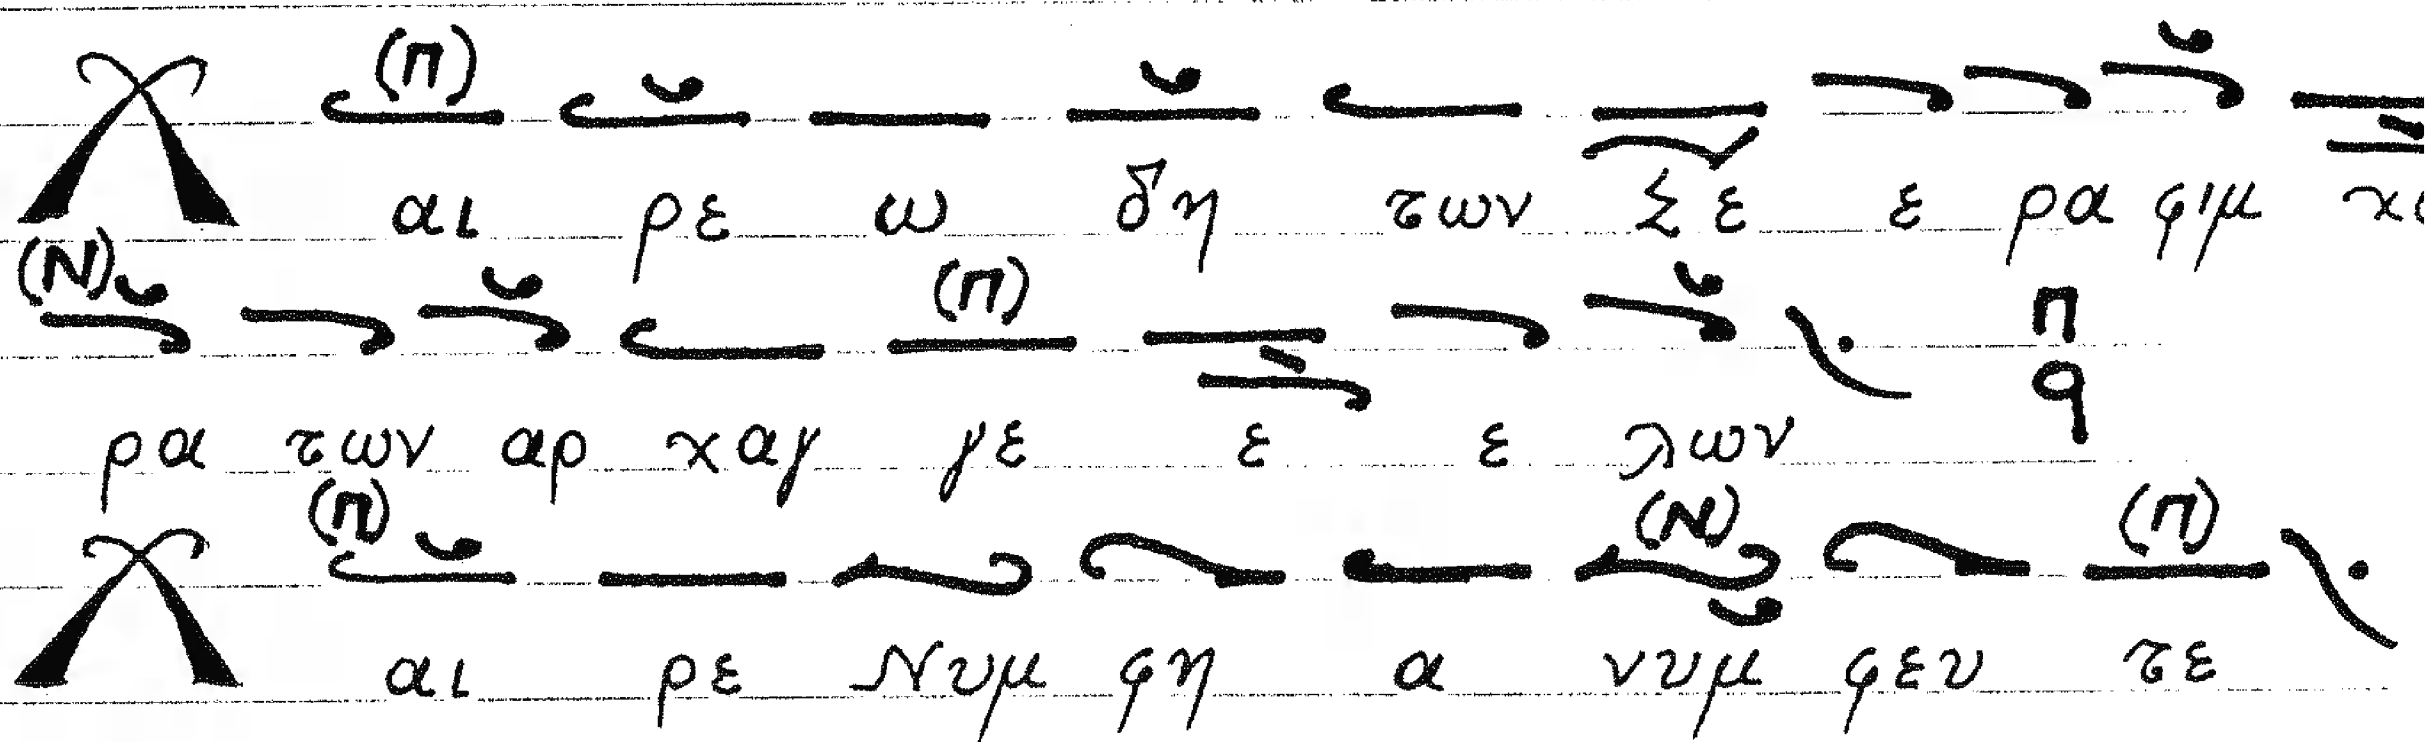 (Π)
Χ αι ρε ω δη των Σε ε ρα φιμ
(Ν) (Π) Π
ρα των αρ χαγ γε ε ε λων q
(Π) (Ν) (Π)
Χ αι ρε Νυμ φη α νυμ φευ τε